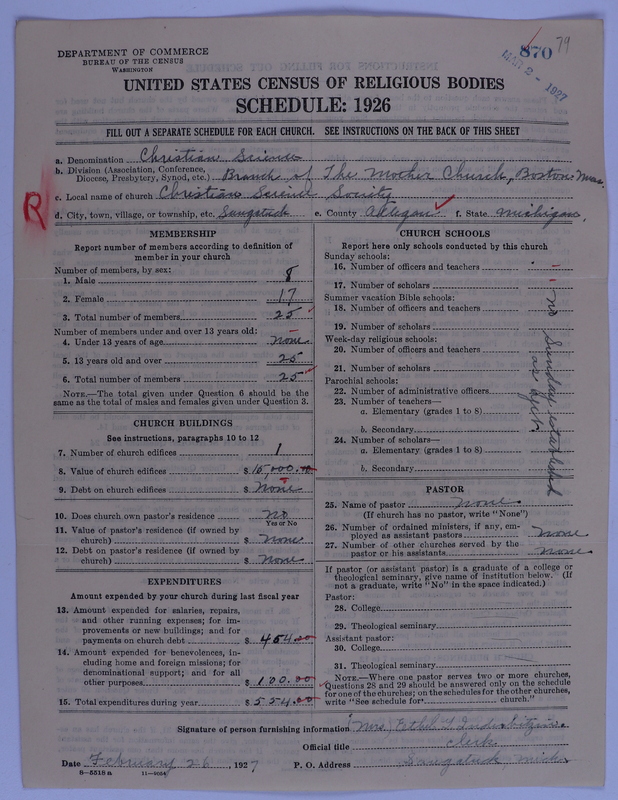 870 79
MAR 2 - 1927
DEPARTMENT OF COMMERCE
BUREAU OF THE CENSUS
WASHINGTON
UNITED STATES CENSUS OF RELIGIOUS BODIES
SCHEDULE: 1926
FILL OUT A SEPARATE SCHEDULE FOR EACH CHURCH. SEE INSTRUCTIONS ON THE BACK OF THIS SHEET
a. Denomination Christian Science
b. Division (Association, Conference,
Diocese, Presbytery, Synod, etc.) Branch of The Mother Church, Boston Mass.
R
c. Local name of church Christian Science Society
d. City, town, village, or township, etc. Saugatuck e. County Allegan f. State Michigan
MEMBERSHIP
Report number of members according to definition of
member in your church
Number of members, by sex:
1. Male 8
2. Female 17
3. Total number of members 25
Number of members under and over 13 years old:
4. Under 13 years of age None
5. 13 years old and over 25
6. Total number of members 25
NOTE.—The total given under Question 6 should be the
same as the total of males and females given under Question 3.
CHURCH BUILDINGS
See instructions, paragraphs 10 to 12
7. Number of church edifices 1
8. Value of church edifices $ 15,000.00
9. Debt on church edifices $ None
10. Does church own pastor's residence? No
Yes or No
11. Value of pastor's residence (if owned by
church) $ None
12. Debt on pastor's residence (if owned by
church) $ None
EXPENDITURES
Amount expended by your church during last fiscal year
13. Amount expended for salaries, repairs,
and other running expenses; for im-
provements or new buildings; and for
payments on church debt $ 454.00
14. Amount expended for benevolences, in-
cluding home and foreign missions; for
denominational support; and for all
other purposes $ 100.00
15. Total expenditures during year $ 554.00
CHURCH SCHOOLS
Report here only schools conducted by this church
Sunday schools:
16. Number of officers and teachers -
17. Number of scholars -
Summer vacation Bible schools:
18. Number of officers and teachers
19. Number of scholars
Week-day religious schools:
20. Number of officers and teachers
21. Number of scholars
Parochial schools:
22. Number of administrative officers
23. Number of teachers—
a. Elementary (grades 1 to 8)
b. Secondary
24. Number of scholars—
a. Elementary (grades 1 to 8)
b. Secondary
no Sunday established
as yet.
PASTOR
25. Name of pastor None
(If church has no pastor, write "None")
26. Number of ordained ministers, if any, em-
ployed as assistant pastors None
27. Number of other churches served by the
pastor or his assistants None
If pastor (or assistant pastor) is a graduate of a college or
theological seminary, give name of institution below. (If
not a graduate, write "No" in the space indicated.)
Pastor:
28. College
29. Theological seminary
Assistant pastor:
30. College
31. Theological seminary
NOTE.—Where one pastor serves two or more churches,
Questions 28 and 29 should be answered only on the schedule
for one of the churches; on the schedules for the other churches,
write "See schedule for church."
Signature of person furnishing information Mrs. Ethel
Official title Clerk
Date February 26, 1927 P. O. Address Saugatuck Mich.
8-5518 a 11-9054